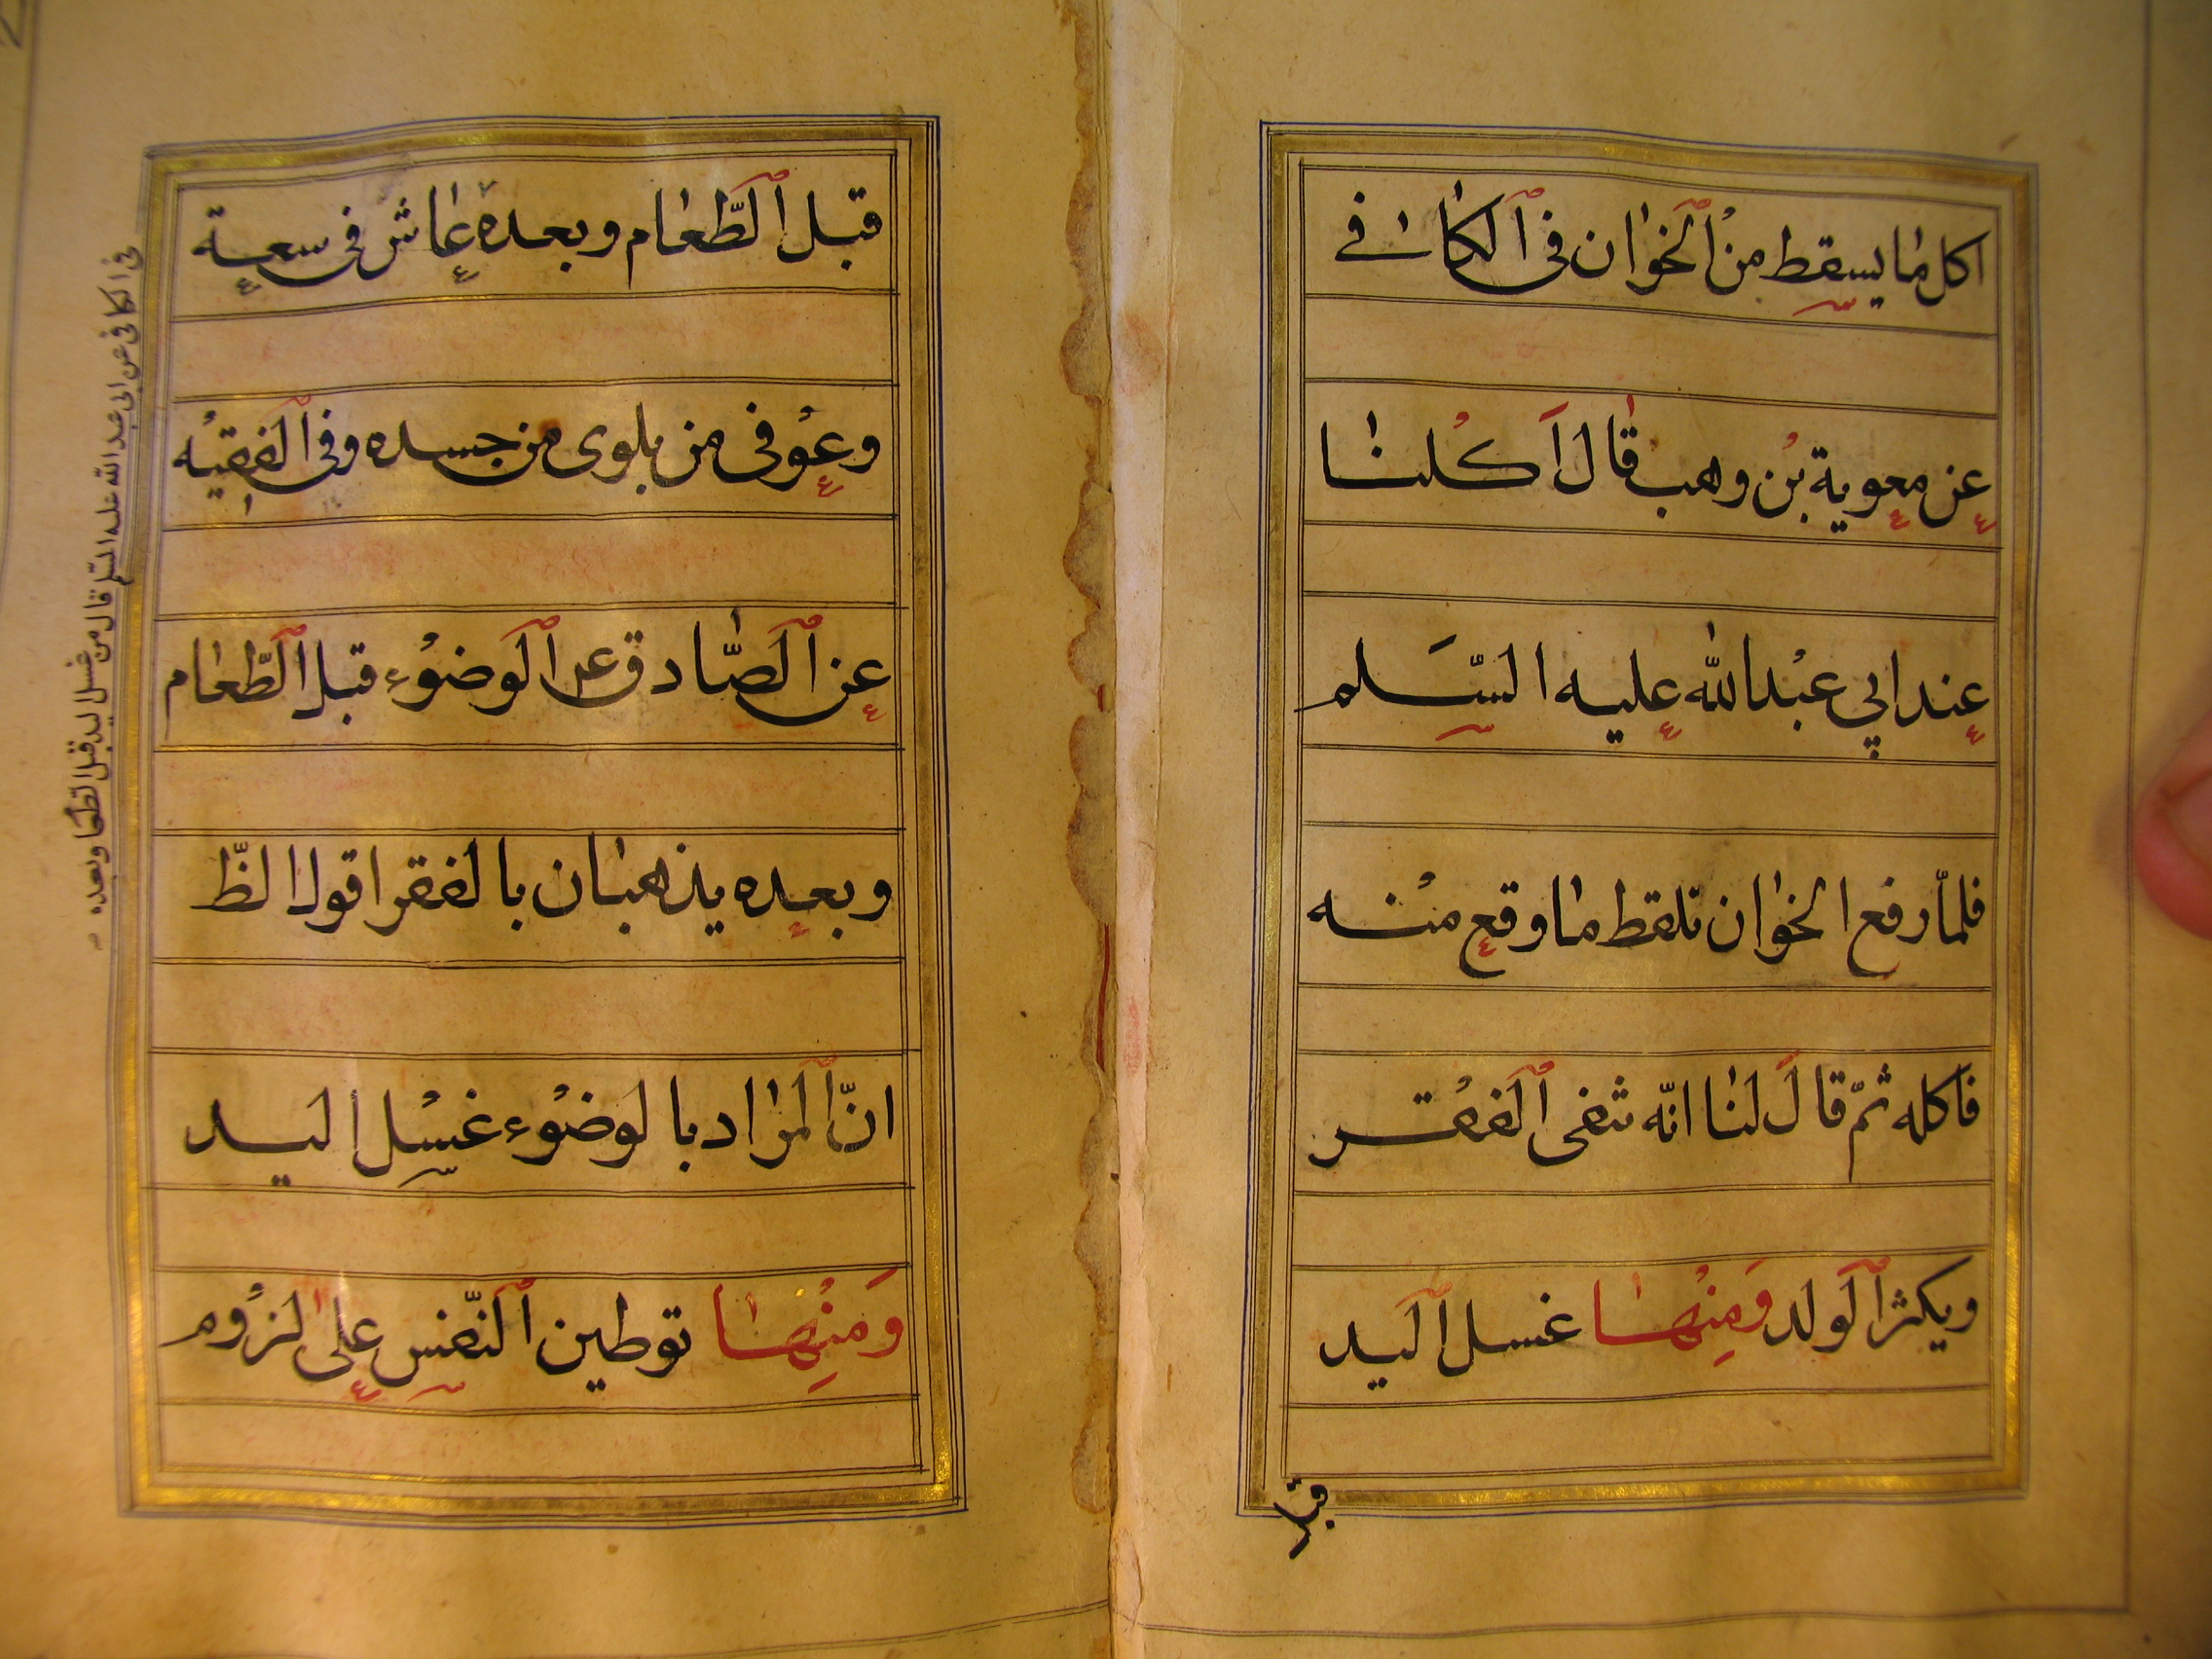 اكل ما يسقط من الخوان فى الكافے
عن معوية بن وهب قال اكلنا
عند ابي عبد الله عليه السلم
فلما رفع الخوان تلقط ما وقع منه
فاكله ثم قال لنا انه تنفى الفقر
ويكثر الولد ومنها غسل اليد
قبل
قبل الطعام وبعده عاش فى سعة
وعوفى من بلوى من جسده وفى الفقيه
عن الصادق ع الوضوء قبل الطعام
وبعده يذهبان بالفقر اقول الظ
ان المراد بالوضوء غسل اليد
ومنها توطين النفس على لزوم
فى الكافى عن ابى عبد الله عليه السلم قال من غسل اليد قبل الطعام وبعده